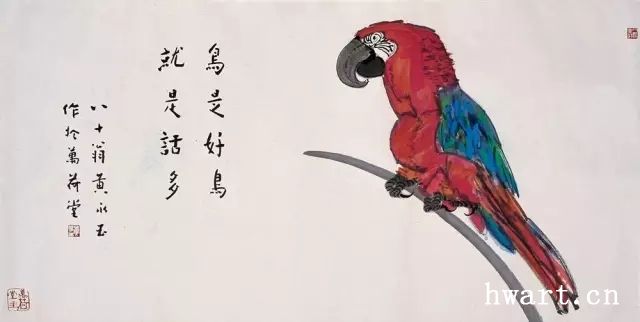 鳥是好鳥
就是話多
八十翁黄永玉
作於萬荷堂
hwart.cn